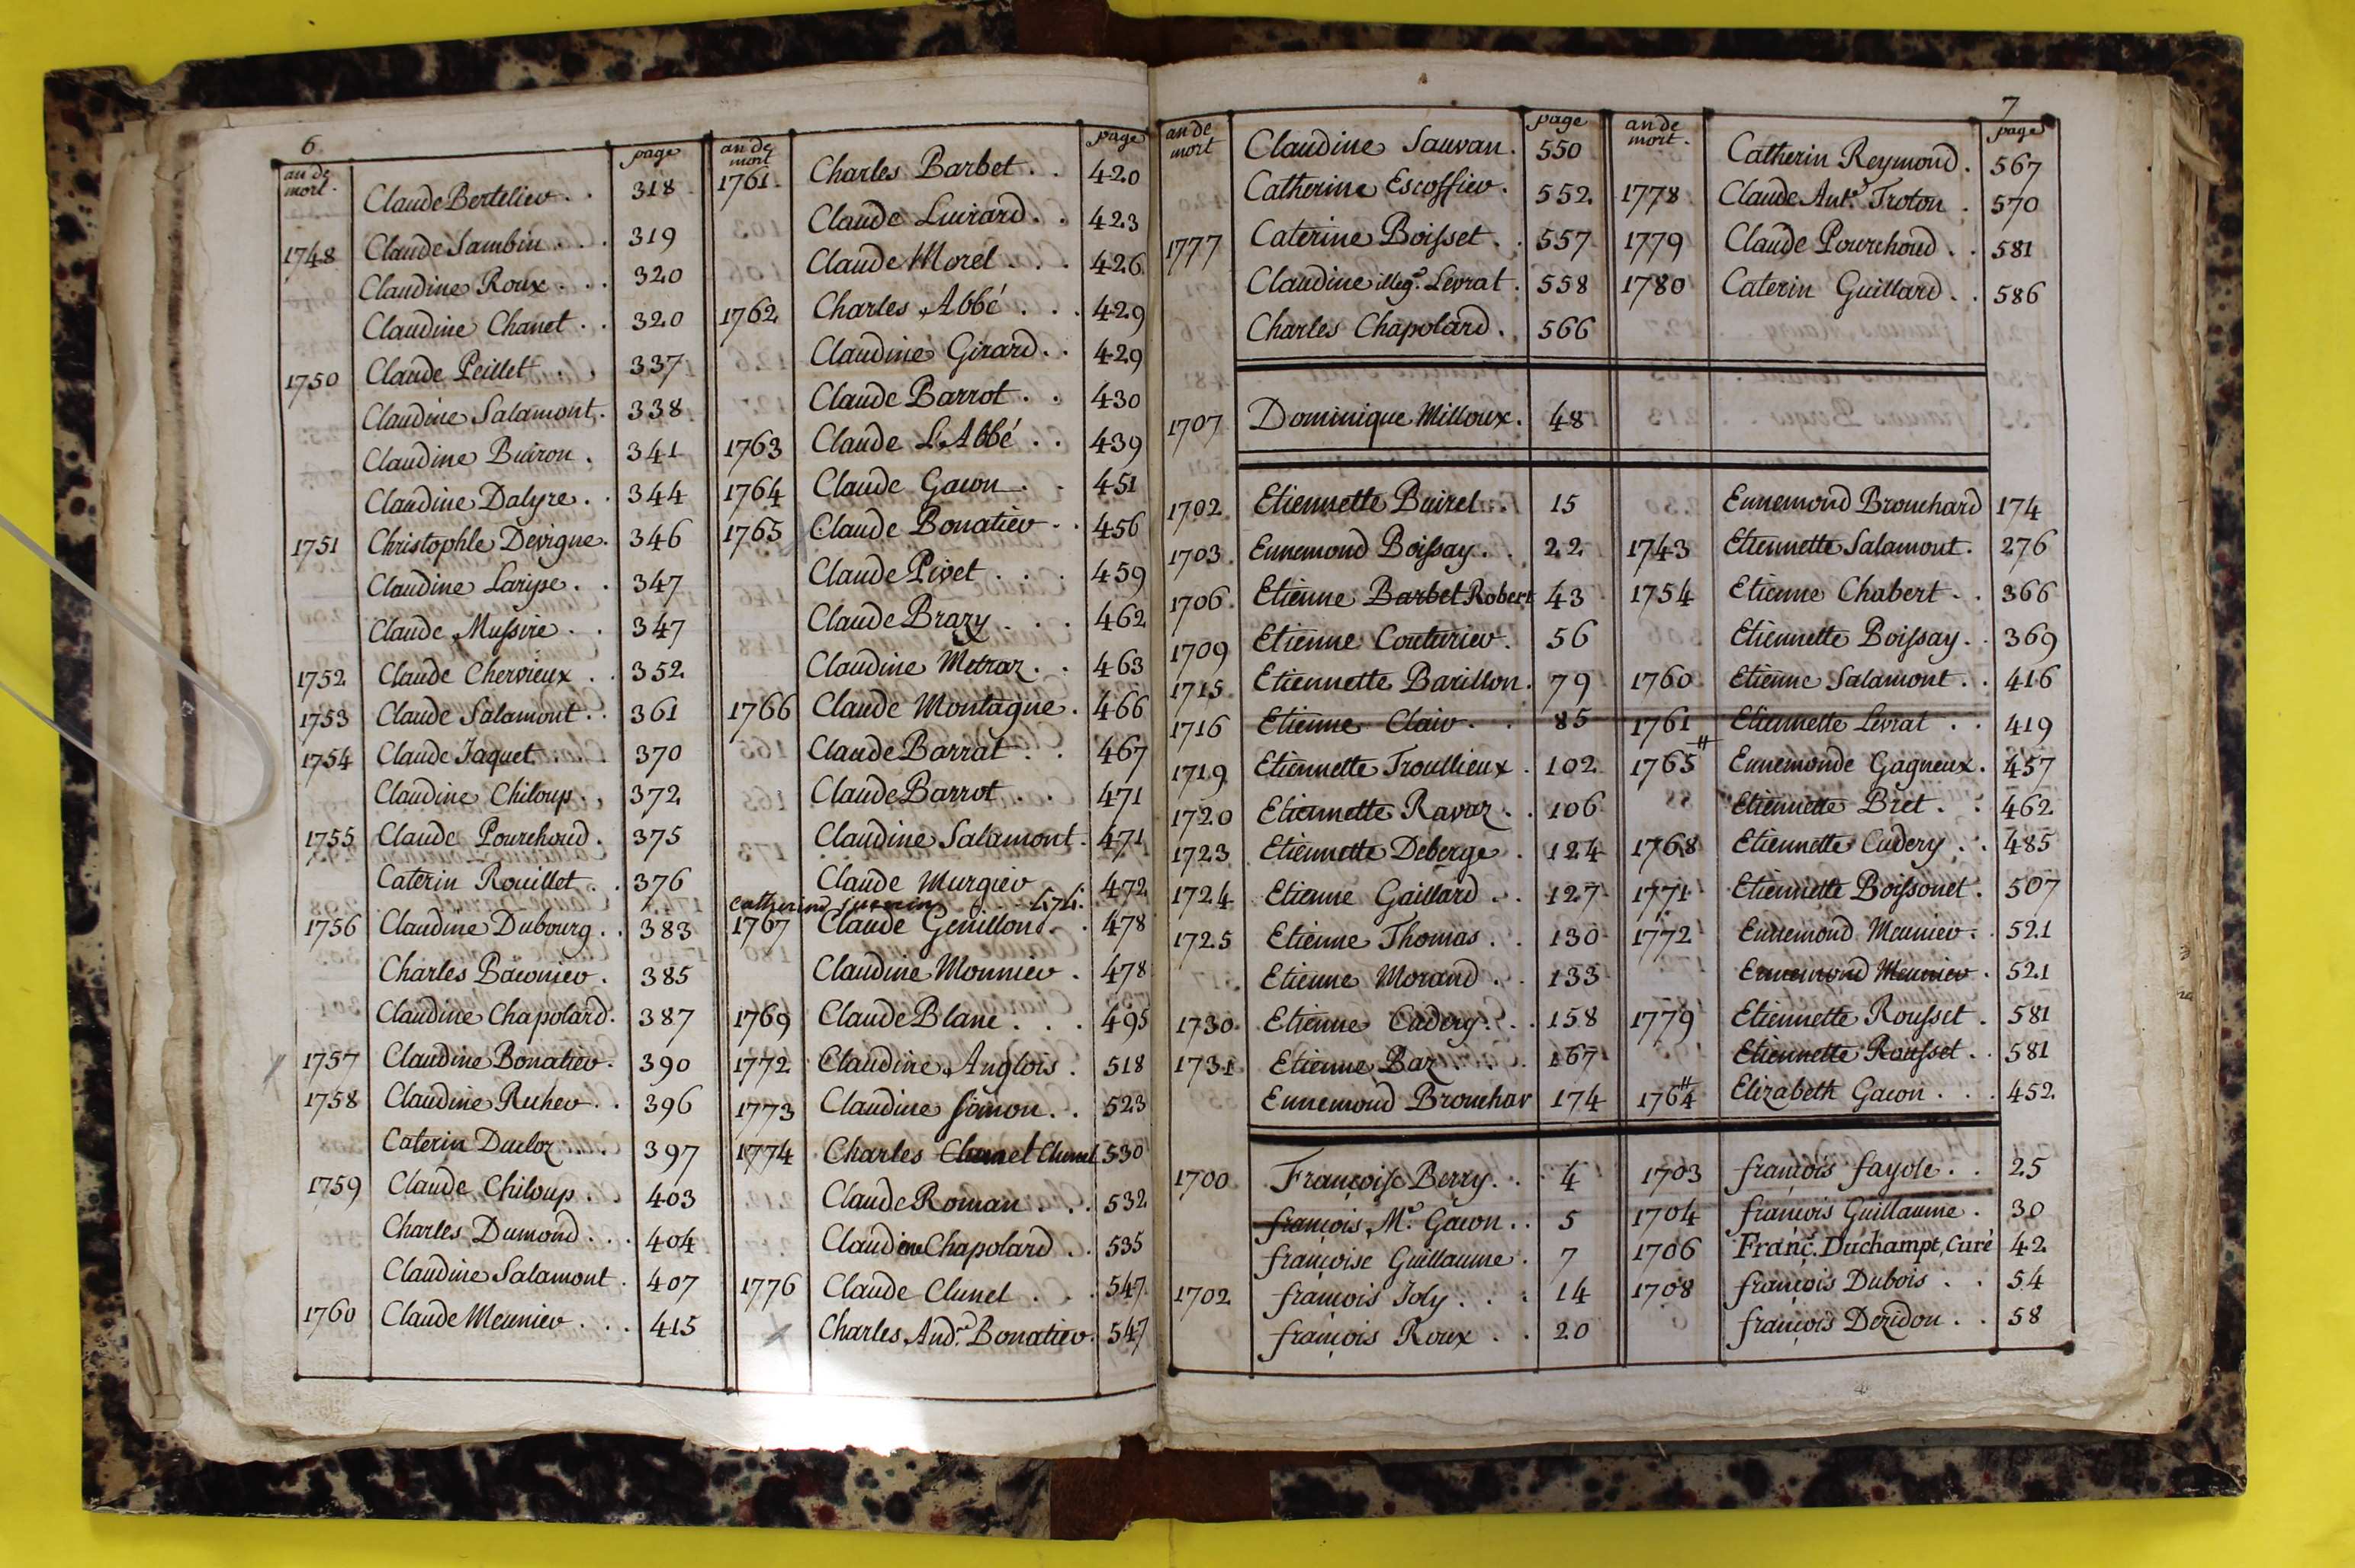 6
an de mort. page
Claude Bertelier . . 318
1748 Claude Sambin . . . 319
Claudine Roux . . . 320
Claudine Chanet . . 320
1750 Claude Peillet . . 337
Claudine Salamont. 338
Claudine Buiron . 341
Claudine Dalyre . . 344
1751 Christophle Devigne. 346
Claudine Laryse . . 347
Claude Mussire . . 347
1752 Claude Chervieux . . 352
1753 Claude Salamont . . 361
1754 Claude Jaquet . . . 370
Claudine Chiloup . , 372
1755 Claude Pourchoud . 375
Caterin Rouillet . . 376
1756 Claudine Dubourg . . 383
Charles Baconier . 385
Claudine Chapolard . 387
1757 Claudine Bonatier . 390
1758 Claudine Ruher . . 396
Caterin Ducloz . . . 397
1759 Claude Chiloup . . 403
Charles Dumond . . . 404
Claudine Salamont . 407
1760 Claude Meunier . . . 415
an de mort page
1761 Charles Barbet . . 420
Claude Luirard . . 423
Claude Morel . . . 426
1762 Charles Abbé . . . 429
Claudine Girard . . 429
Claude Barrot . . 430
1763 Claude L'Abbé . . 439
1764 Claude Gacon . . 451
1765 Claude Bonatier . . 456
Claude Pivet . . . 459
Claude Brazy . . . 462
Claudine Metraz . . 463
1766 Claude Montagne . 466
Claude Barrat . . 467
Claude Barrot . . 471
Claudine Salamont . 471
Claude Murgier 472
catherine
1767 Claude Genillon . . 478
Claudine Monnier . 478
1769 Claude Blanc . . . 495
1772 Claudine Anglois . 518
1773 Claudine Simon . . 523
1774 Charles Clunel 530
Claude Roman . . . 532
Claudine Chapolard . . 535
1776 Claude Clunel . . . 547
Charles And.e Bonatier . 547
7
an de mort page
Claudine Sauvan . 550
Catherine Escoffier . 552
1777 Caterine Boisset . . 557
Claudine illeg.e Levrat . 558
Charles Chapolard . 566
an de mort. page
Catherin Reymond . 567
1778 Claude Ant.e Troton . 570
1779 Claude Pourchoud . . 581
1780 Caterin Guillard . . 586
1707 Dominique Milloux . 48
1702 Etiennette Buirel . . 15
1703 Ennemond Boissay . . 22
1706 Etienne Barbet Robert 43
1709 Etienne Couturier . 56
1715 Etiennette Barillon . 79
1716 Etienne Clair . . 85
1719 Etiennette Troullieux . 102
1720 Etiennette Ravaz . . 106
1723 Etiennette Deberge . 124
1724 Etienne Gaillard . . 127
1725 Etienne Thomas . . 130
Etienne Morand . . 133
1730 Etienne Cudery . . . 158
1731 Etienne Baz . . . . 167
Ennemond Brouchar 174
Ennemond Brouchard 174
1743 Etiennette Salamont . 276
1754 Etienne Chabert . . 366
Etiennette Boissay . . 369
1760 Etienne Salamont . . 416
1761 Etiennette Levrat . . 419
1765 Ennemonde Gagneux . 457
Etiennette Bret . . 462
1768 Etiennette Cudery . . 485
1771 Etiennette Boissonet . 507
1772 Ennemond Meunier . . 521
Ennemond Meunier . 521
1779 Etiennette Rousset . 581
Etiennette Rousset . . 581
1764 Elizabeth Gacon . . . 452
1700 Françoise Berry . . 4
françois M.e Gacon . . 5
françoise Guillaume . 7
1702 françois Joly . . . 14
françois Roux . . 20
1703 françois fayole . . 25
1704 françois Guillaume . 30
1706 Franç. Duchampt, Curé 42
1708 françois Dubois . . 54
françois Deridon . . 58